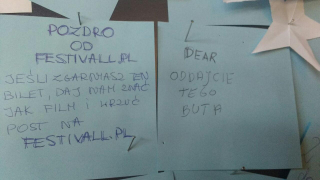 POZDRO
OD
FESTIVALL.PL
JEŚLI ZGARNIASZ TEN
BILET, DAJ NAM ZNAĆ
JAK FILM I WRZUĆ
POST NA
FESTIVALL.PL
DEAR
ODDAJCIE
TEGO
BUTA